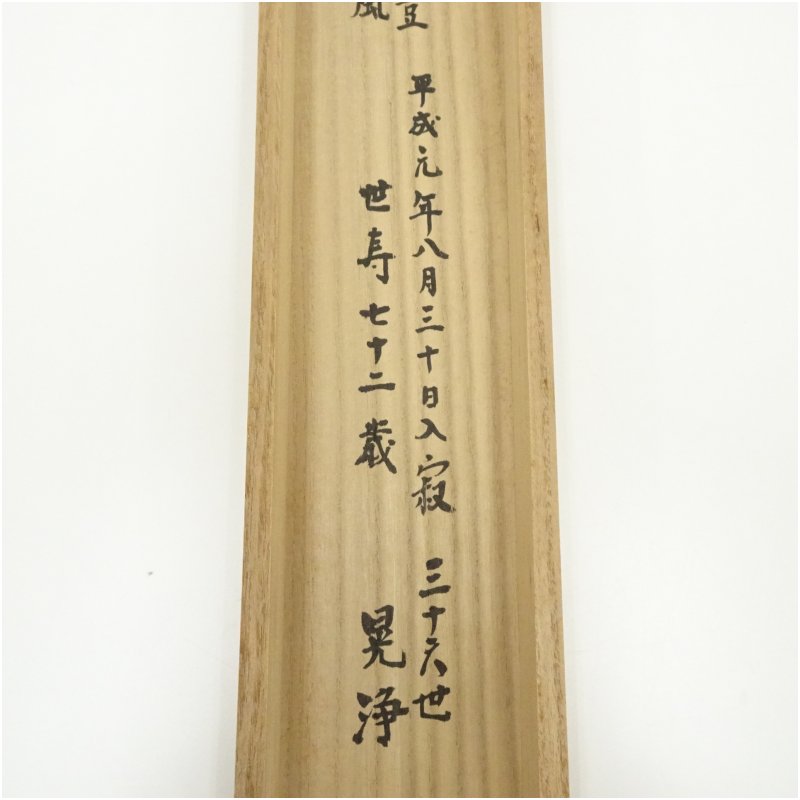 平成元年八月三十日入寂 三十六世
世寿七十二歳 晃浄